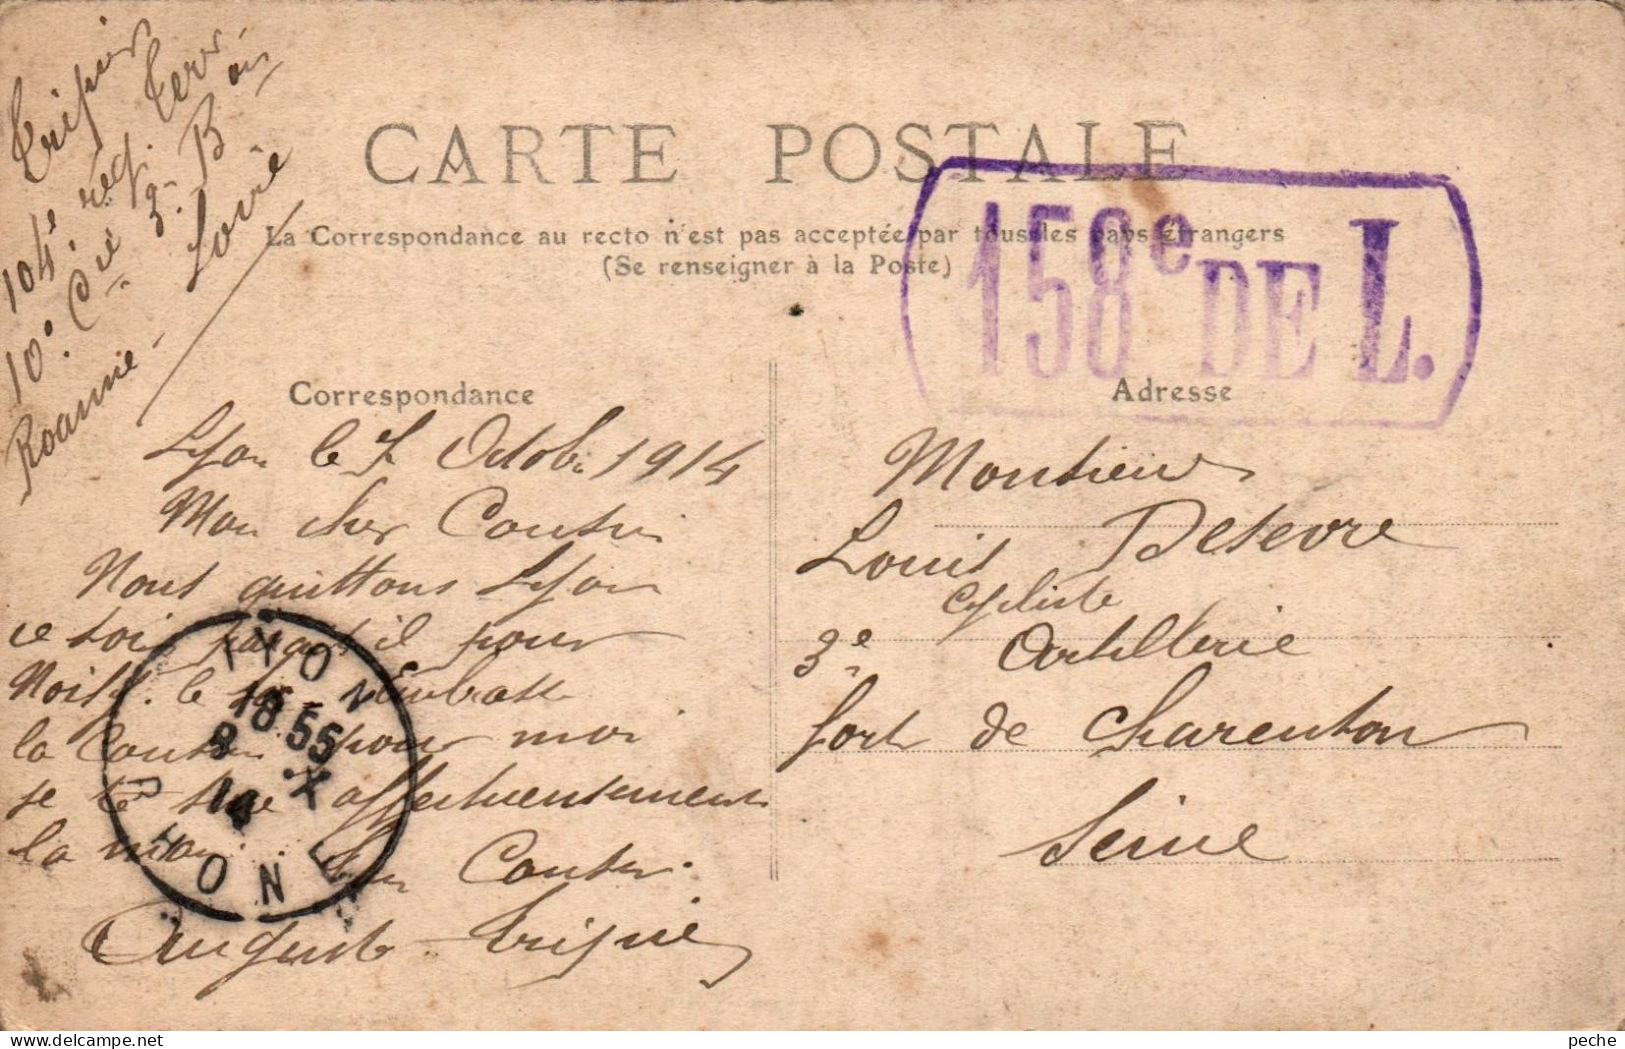 Tripier
104e reg. Terr-
10e Cie 3e Bon
Roanne - Loire
CARTE POSTALE
La Correspondance au recto n'est pas acceptée par tous les pays étrangers
(Se renseigner à la Poste)
158e DE L.
Correspondance
Adresse
Lyon le 7 Octob. 1914
Mon cher Cousin
Nous quittons Lyon
ce soir parait il pour
le Embrasse
la Cousine pour moi
je te affectueusement
la main. Ton Cousin.
Auguste Tripier
LYON
18 55
8 X
14
RHONE
Monsieur
Louis Desevre
Cycliste
3e Artillerie
fort de Charenton
Seine
peche